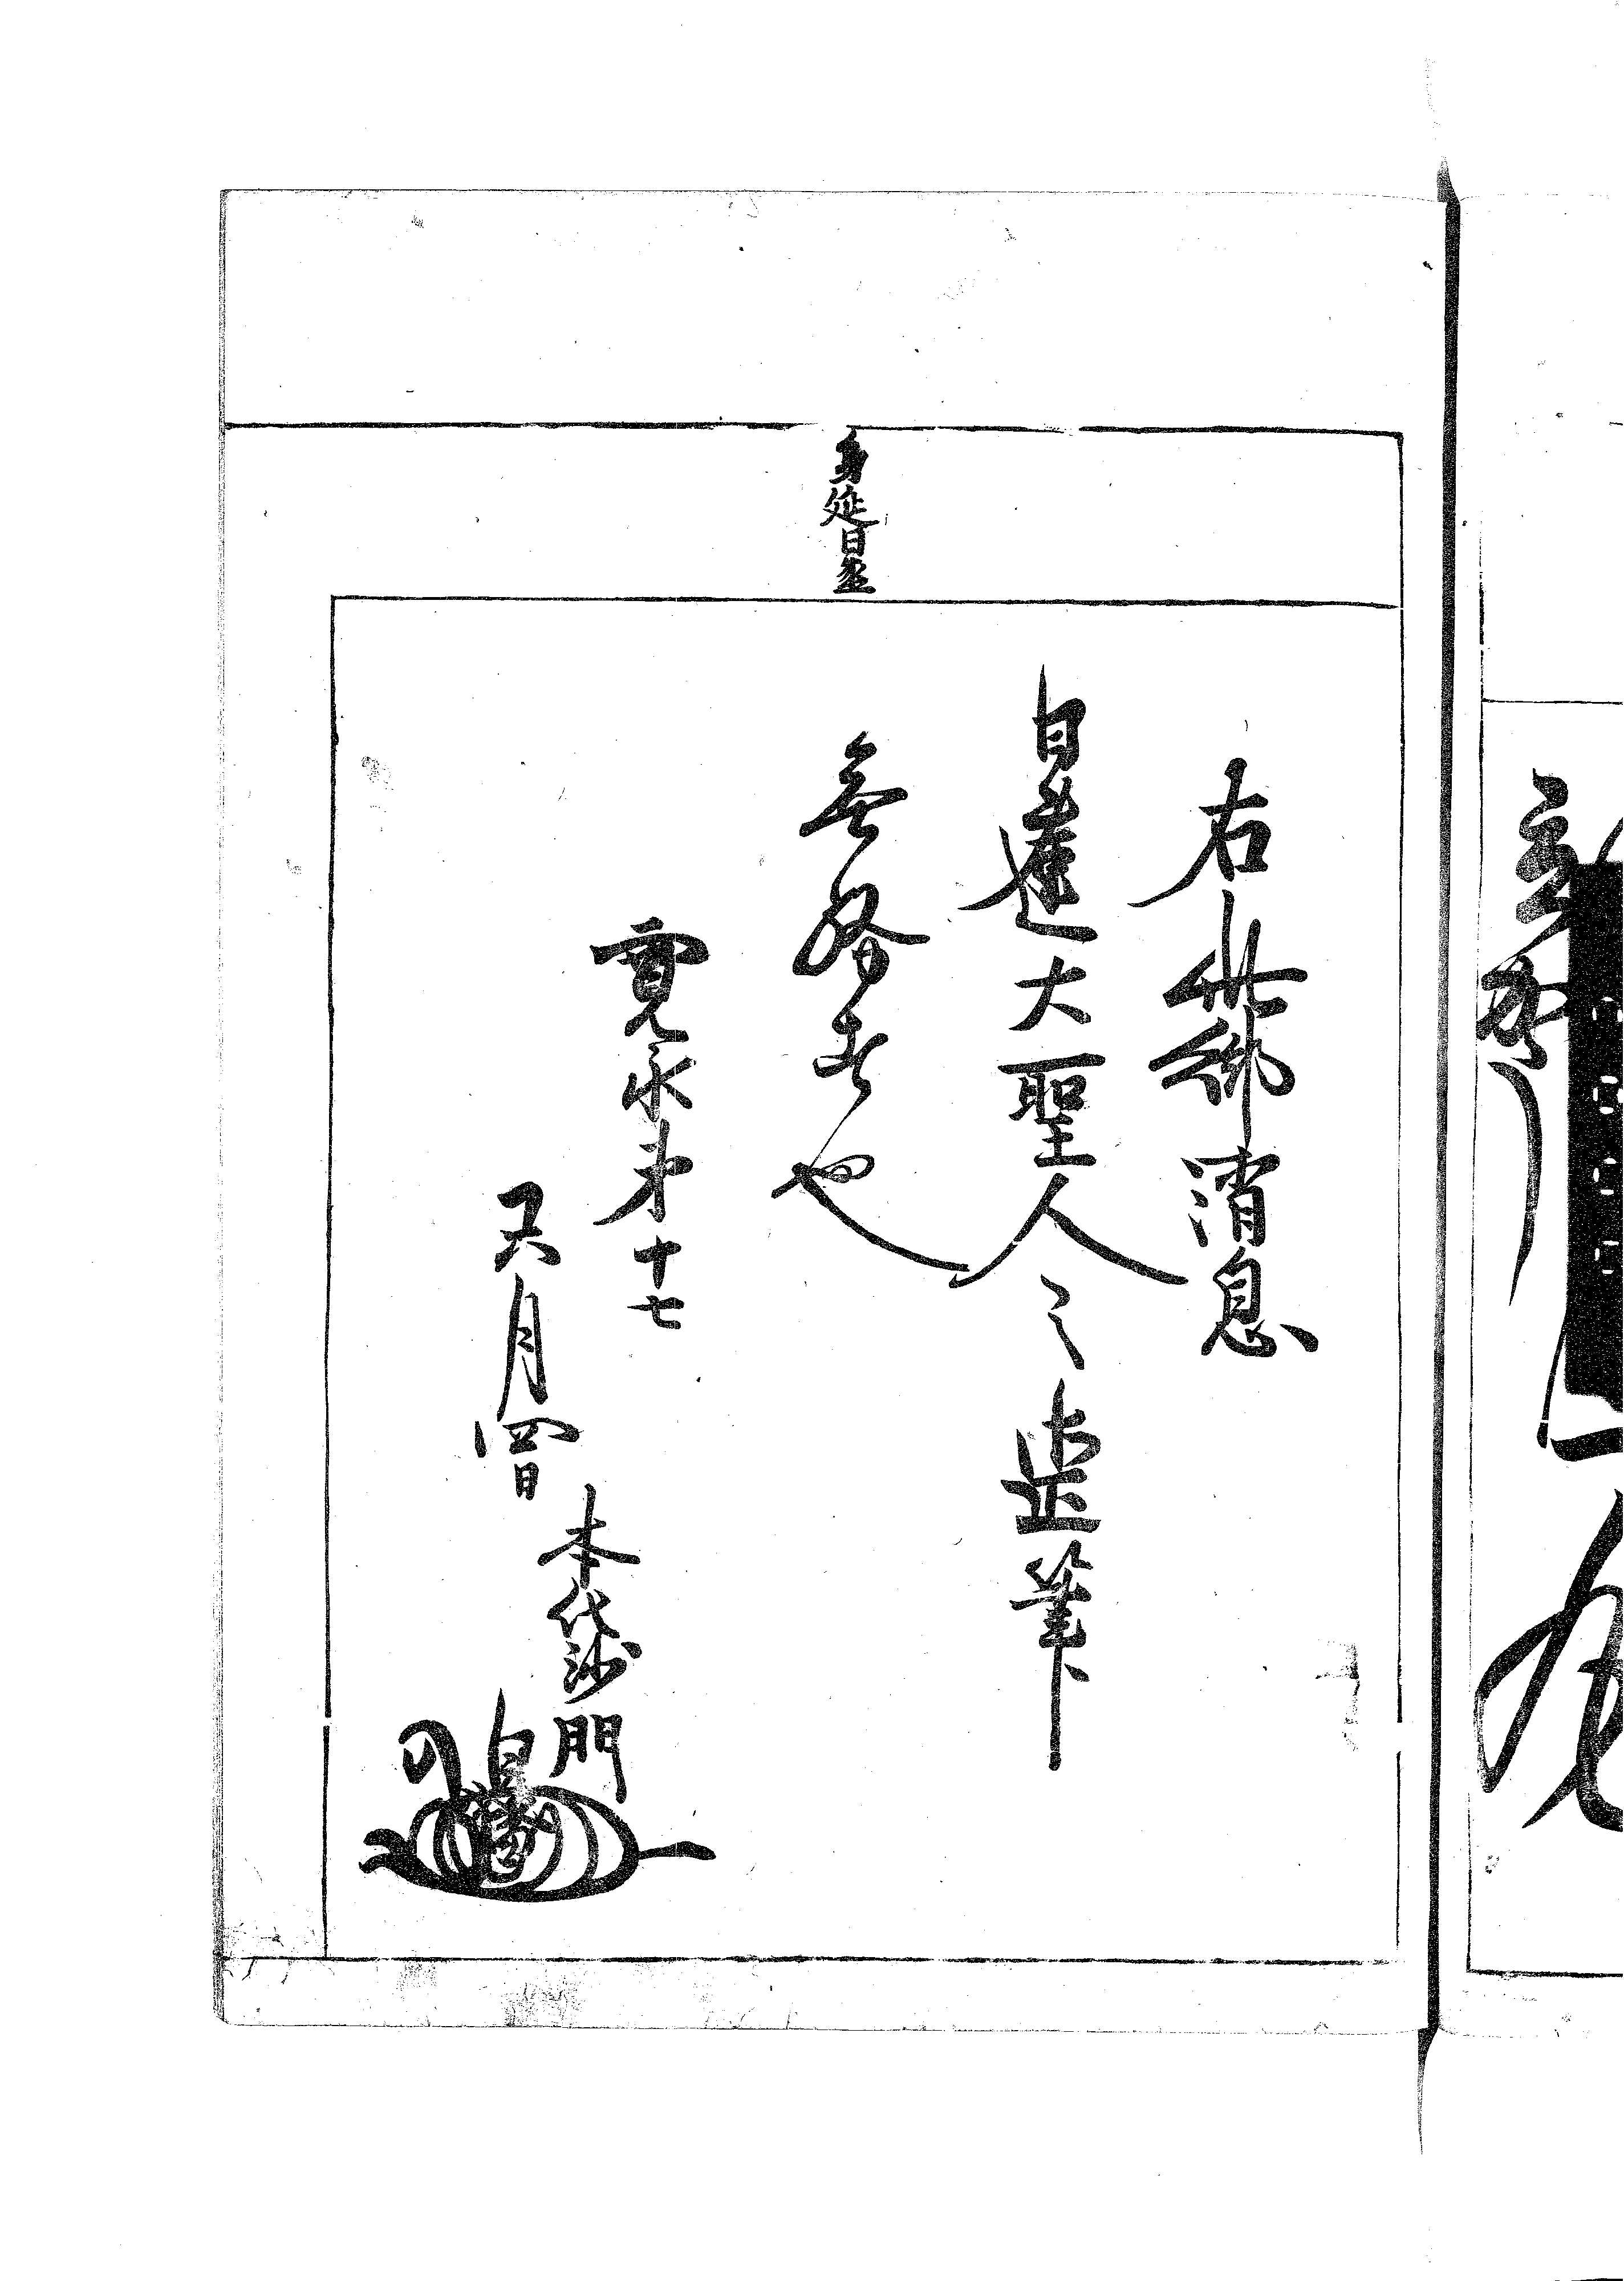 身延日
右此御消息
日蓮大聖人之正筆
無疑者也
寛永第十七
五月四日
本沙門
日